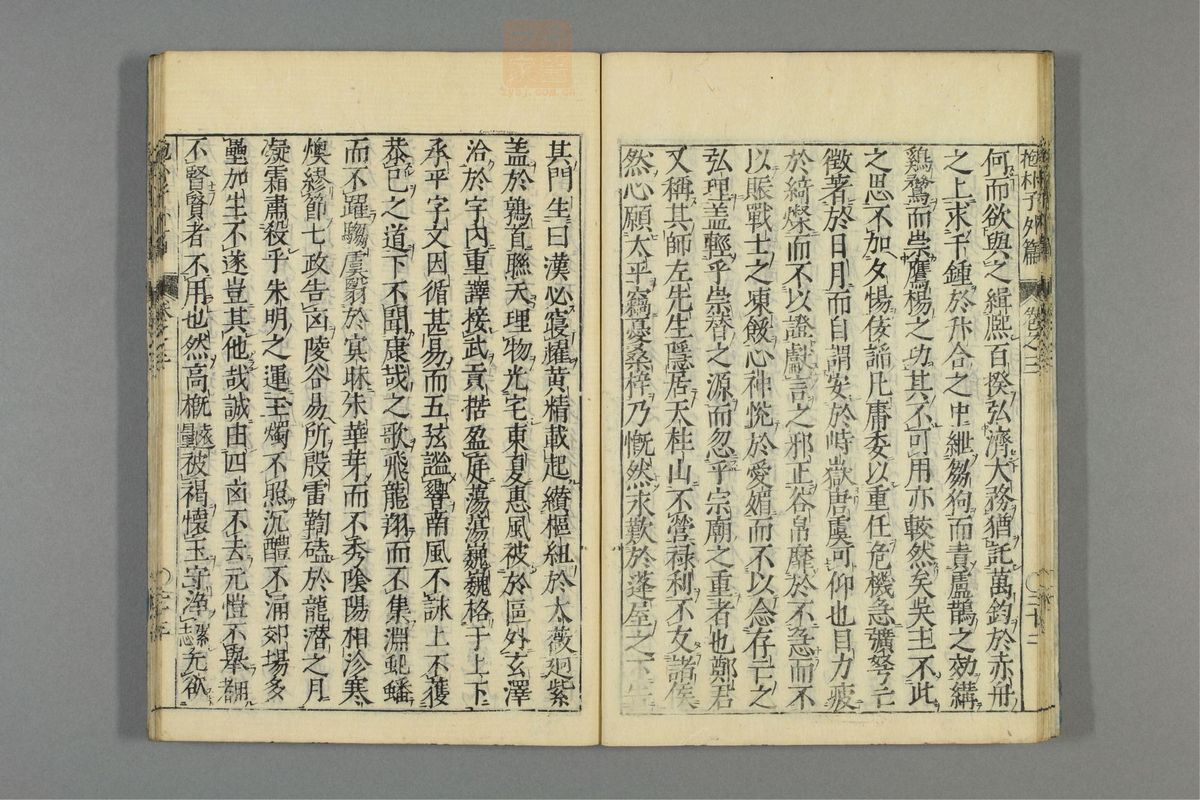 抱朴子外篇 卷之三
何而欲與之緝熈百揆弘濟大務猶託萬鈞於赤卅
之上求千鍾於升合之中紲芻狗而責盧鵲之効紲
鷄鶩而崇鷹揚之功其不可用亦較然矣吳主不此
之思不加夕惕佞謟凡庸委以重任危機急彍弩亡
徵著於日月而自謂安於峙嶽唐虞可仰也目力疲
於綺粲而不以證獻言之邪正谷帛靡於不急而不
以賑戰士之凍餒心神恱於愛媚而不以念存亡之
弘理盖輕乎崇替之源而忽乎宗廟之重者也鄭君
又稱其師左先生隱居天柱山不營禄利不友諸侯
然心願太平竊憂桑梓乃慨然永歎於蓬屋之下告
其門生曰漢必寑耀黃精載起纉樞紐於太薇廻紫
盖於鶉首聮天理物光宅東夏惠風被於區外玄澤
洽於宇內重譯接武貢楛盈庭蕩蕩巍巍格于上下
承平守文因循甚易而五弦謐響南風不詠上不獲
恭已之道下不聞康哉之歌飛龍翔而不集淵虬蟠
而不躍騶虞翳於冥昧朱華芽而不秀陰陽相沴寒
燠繆節七政告凶陵谷易所殷雷鞫磕於龍潜之月
凝霜肅殺乎朱明之運玉燭不照沉醴不涌郊場多
壘加生不遂豈其他哉誠由四凶不去元愷不舉
不賢賢者不用也然高槪遠量被褐懷玉守浄潔志无欲